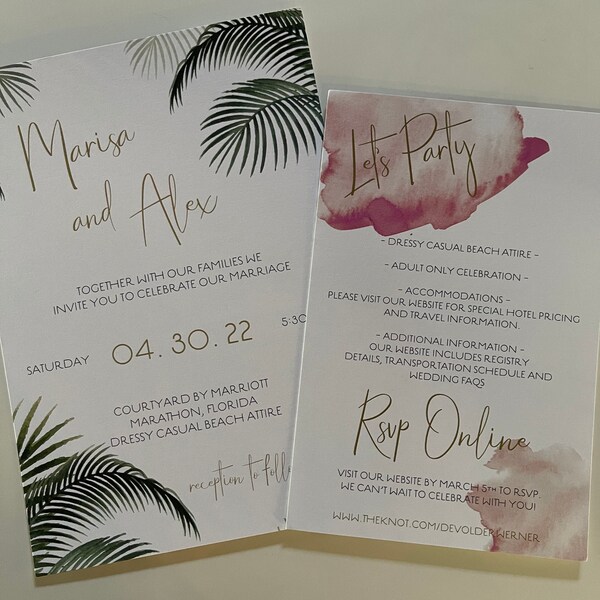 Marisa
and Alex
TOGETHER WITH OUR FAMILIES WE
INVITE YOU TO CELEBRATE OUR MARRIAGE
SATURDAY 04. 30. 22 5:30
COURTYARD BY MARRIOTT
MARATHON, FLORIDA
DRESSY CASUAL BEACH ATTIRE
reception to follo
Let's Party
- DRESSY CASUAL BEACH ATTIRE -
- ADULT ONLY CELEBRATION -
- ACCOMMODATIONS -
PLEASE VISIT OUR WEBSITE FOR SPECIAL HOTEL PRICING
AND TRAVEL INFORMATION.
- ADDITIONAL INFORMATION -
OUR WEBSITE INCLUDES REGISTRY
DETAILS, TRANSPORTATION SCHEDULE AND
WEDDING FAQS
Rsvp Online
VISIT OUR WEBSITE BY MARCH 5TH TO RSVP.
WE CAN'T WAIT TO CELEBRATE WITH YOU!
WWW.THEKNOT.COM/DEVOLDERWERNER